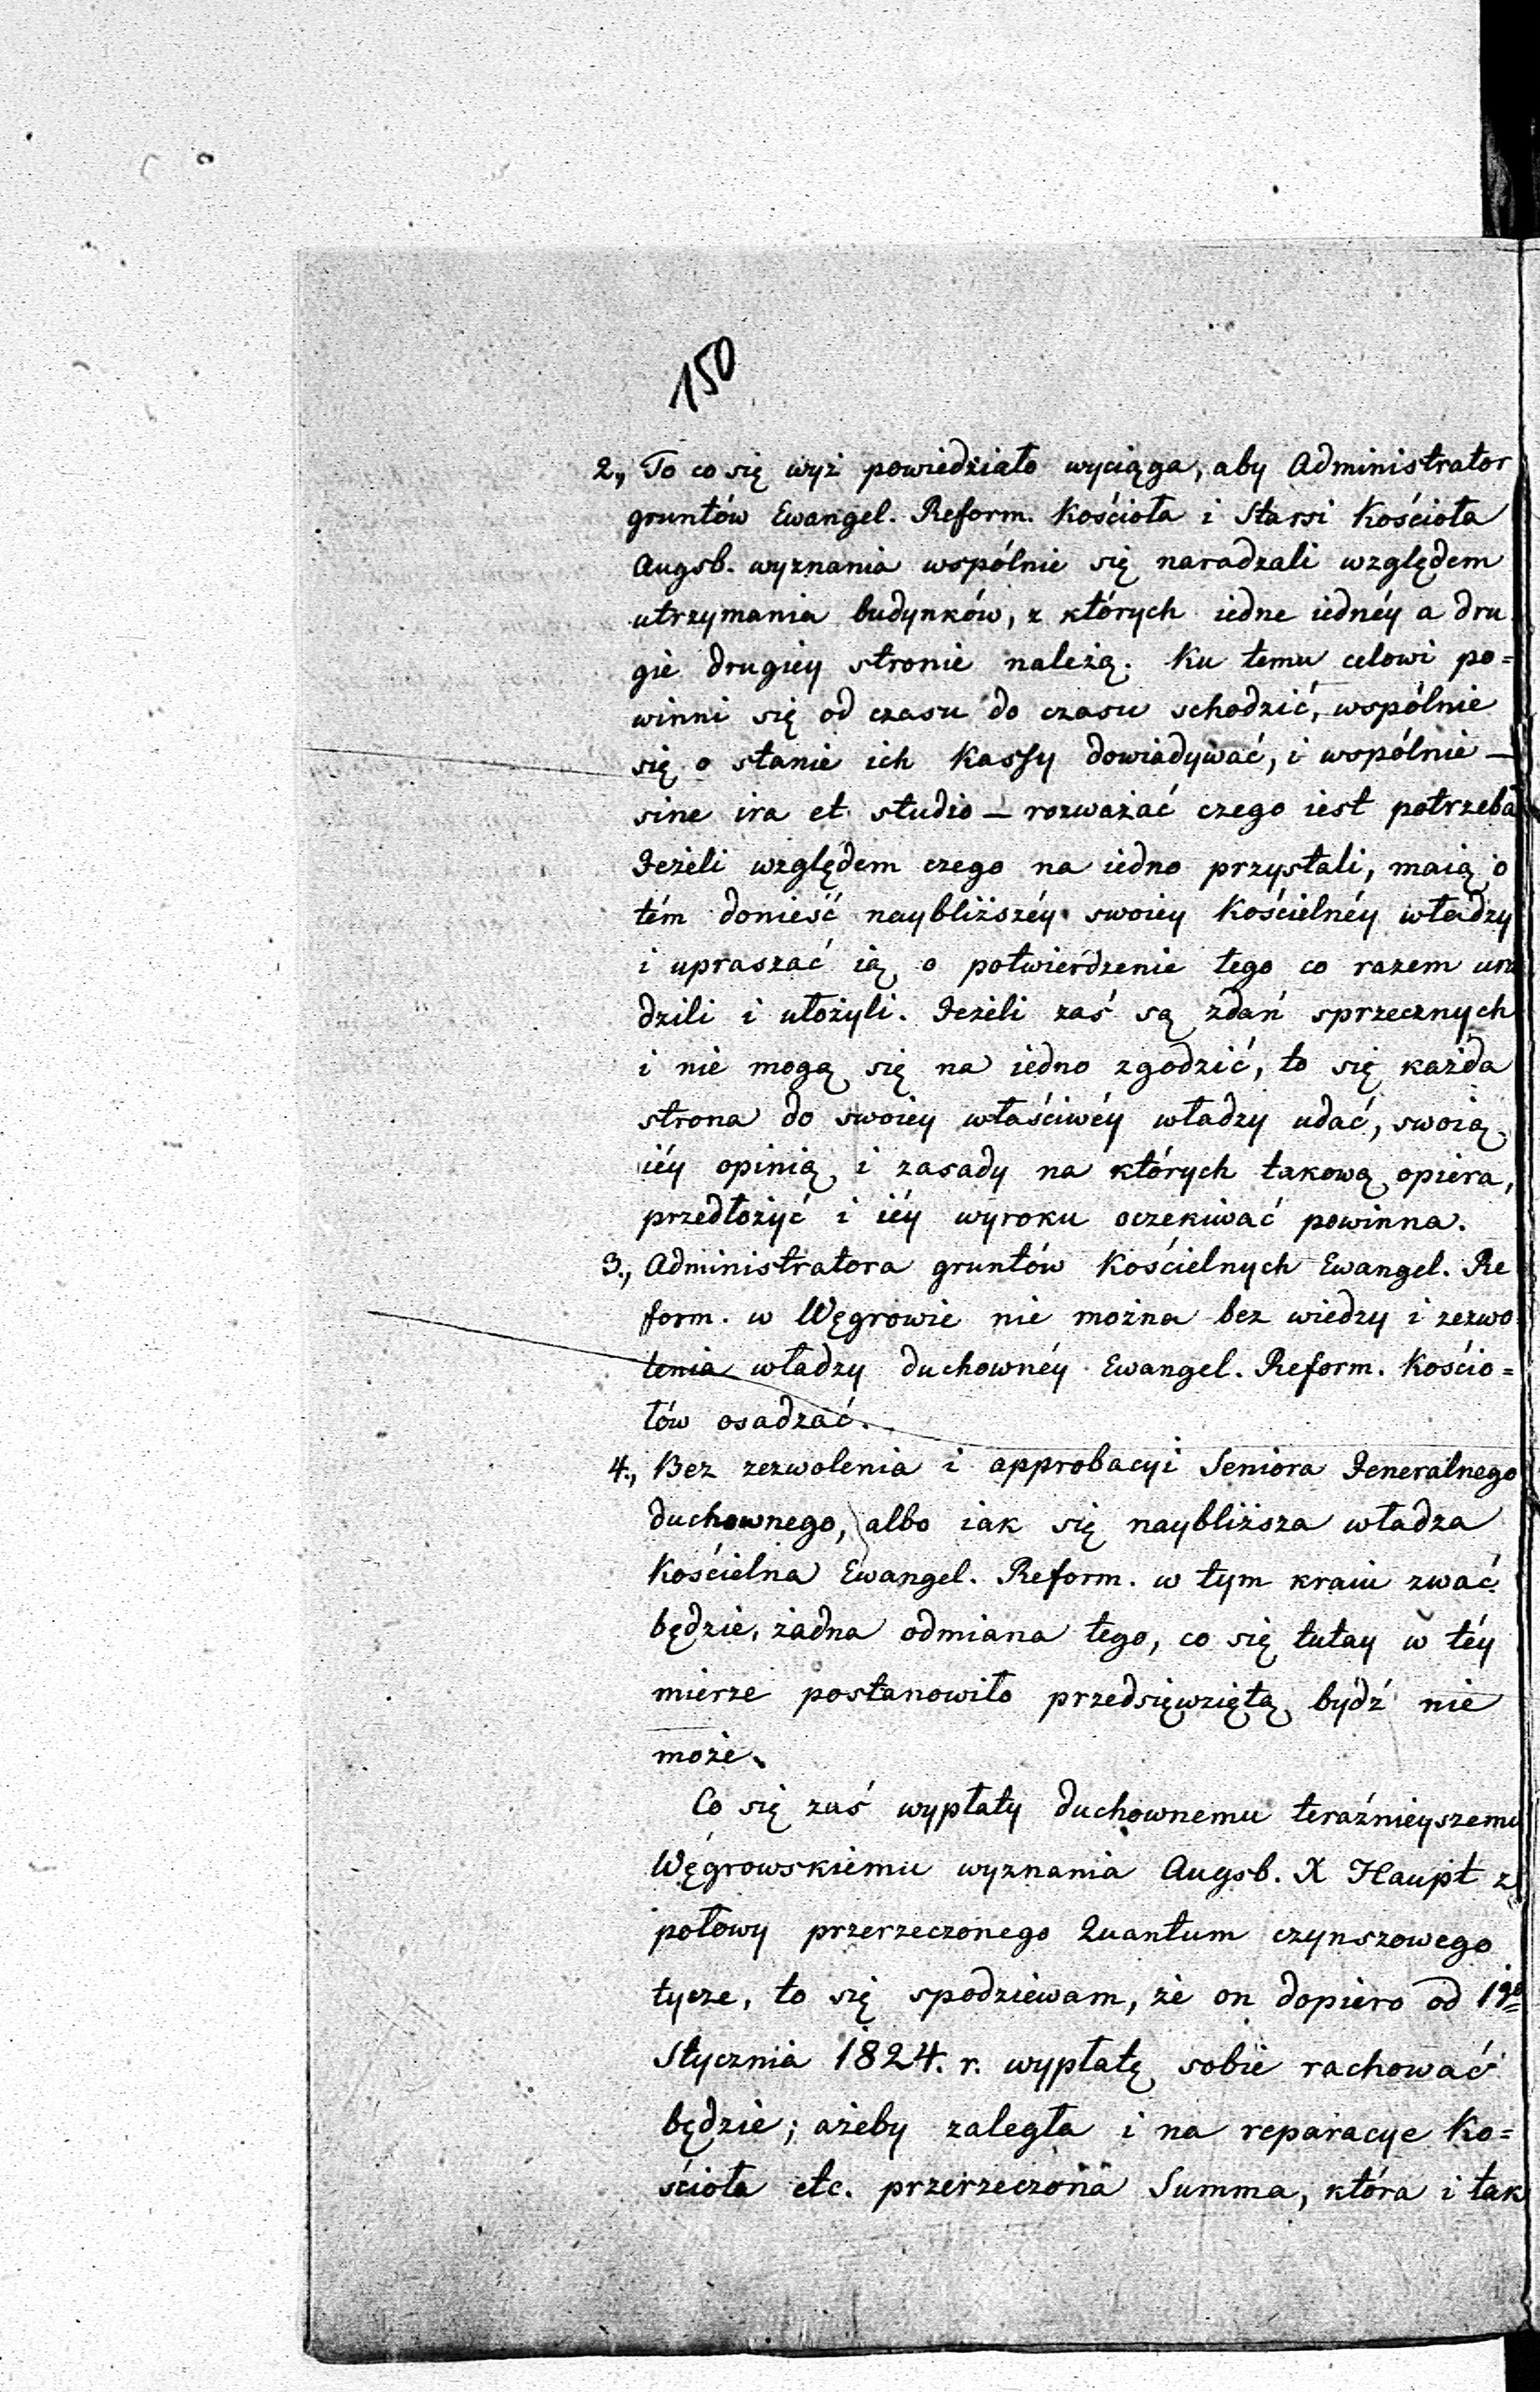 150
2., To co się wyż powiedziało wyciąga, aby Administrator
gruntów Ewangel. Reform. Kościoła i Starsi Kościoła
Augsb. wyznania wspólnie się naradzali względem
utrzymania budynków, z których iedne iednéy a dru
gie drugiey stronie należą. Ku temu celowi po=
winni się od czasu do czasu schodzić, wspólnie
się o stanie ich Kassy dowiadywać, i wspólnie —
sine ira et studio — rozważać czego iest potrzeba
Ieżeli względem czego na iedno przystali, maią o
tém donieść naybliższéy swoiey Kościelnéy władzy
i upraszać ią o potwierdzenie tego co razem
dzili i ułożyli. Ieżeli zaś są zdań sprzecznych
i nie mogą się na iedno zgodzić, to się każda
strona do swoiey właściwéy władzy udać, swoią
iéy opinią i zasady na których takową opiera,
przedłożyć i iéy wyroku oczekiwać powinna.
3., Administratora gruntów Kościelnych Ewangel. Re
form. w Węgrowie nie można bez wiedzy i zezwo
lenia władzy duchownéy Ewangel. Reform. Kościo=
łów osadzać.
4., Bez zezwolenia i approbacyi Seniora Jeneralnego
duchownego, albo iak się naybliższa władza
Kościelna Ewangel. Reform. w tym kraiu zwać
będzie, żadna odmiana tego, co się tutay w téy
mierze postanowiło przedsięwziętą bydź nie
może.
Co się zaś wypłaty duchownemu teraźnieyszemu
Węgrowskiemu wyznania Augsb. X Haupt z
połowy przerzeczonego Quantum czynszowego
tycze, to się spodziewam, że on dopiero od 1go
Stycznia 1824. r. wypłatę sobie rachować
będzie; ażeby zaległa i na reparacye Ko=
ścioła etc. przerzeczona Summa, która i tak